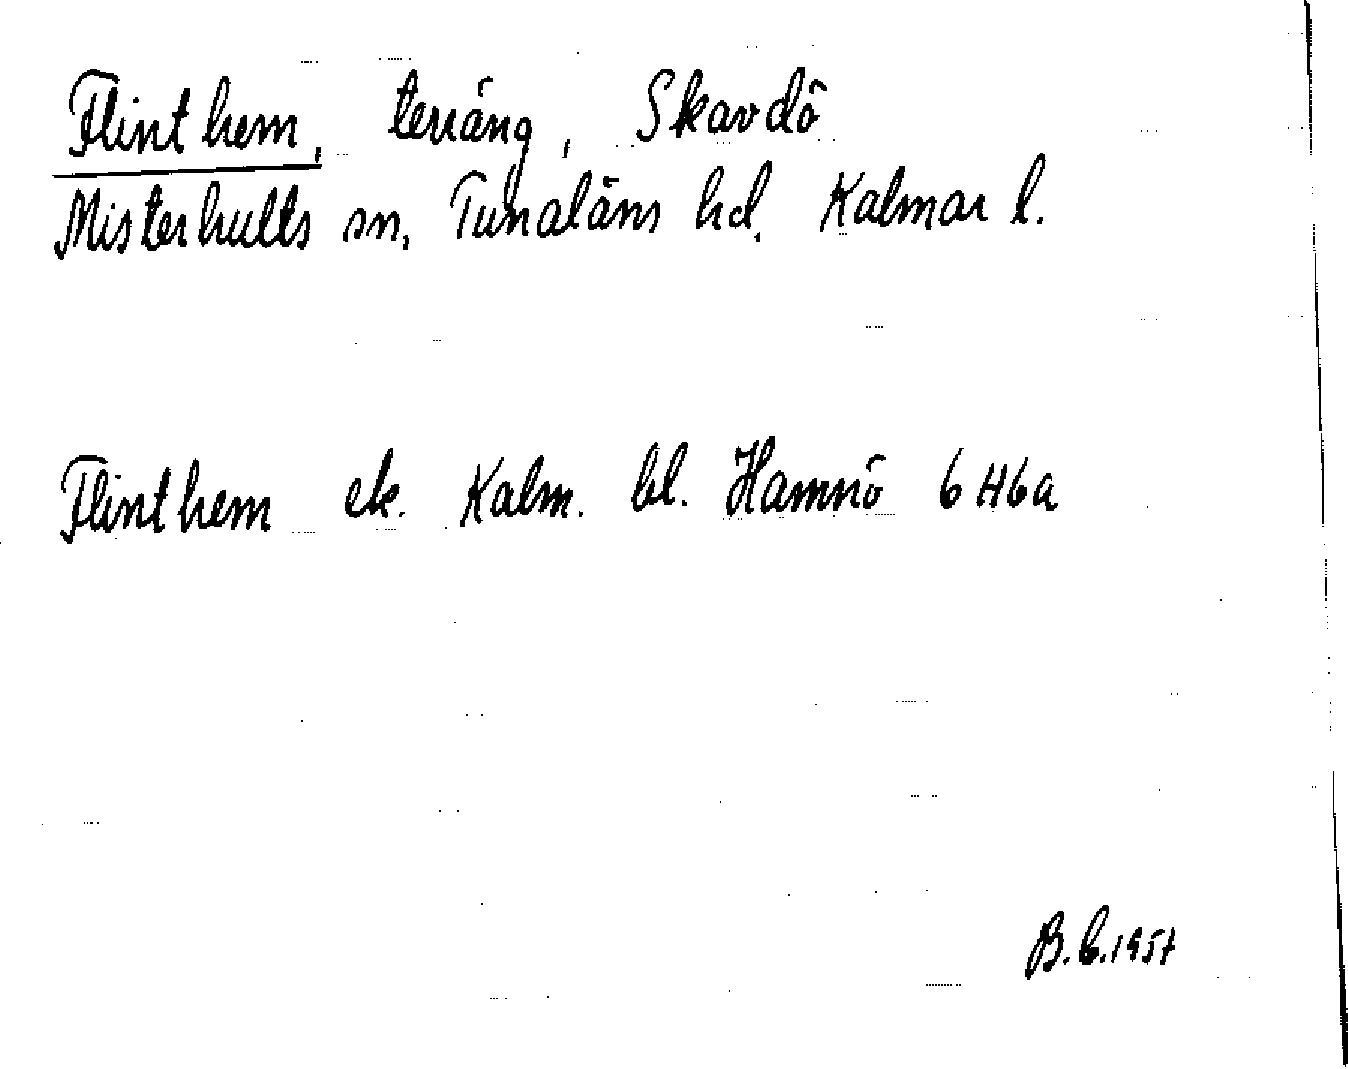 Flinthem, terräng, Skavdö
Misterhults sn, Tunaläns hd, Kalmar l.
Flinthem ek. Kalm. bl. Hamnö 6 H6a
B.C.1957